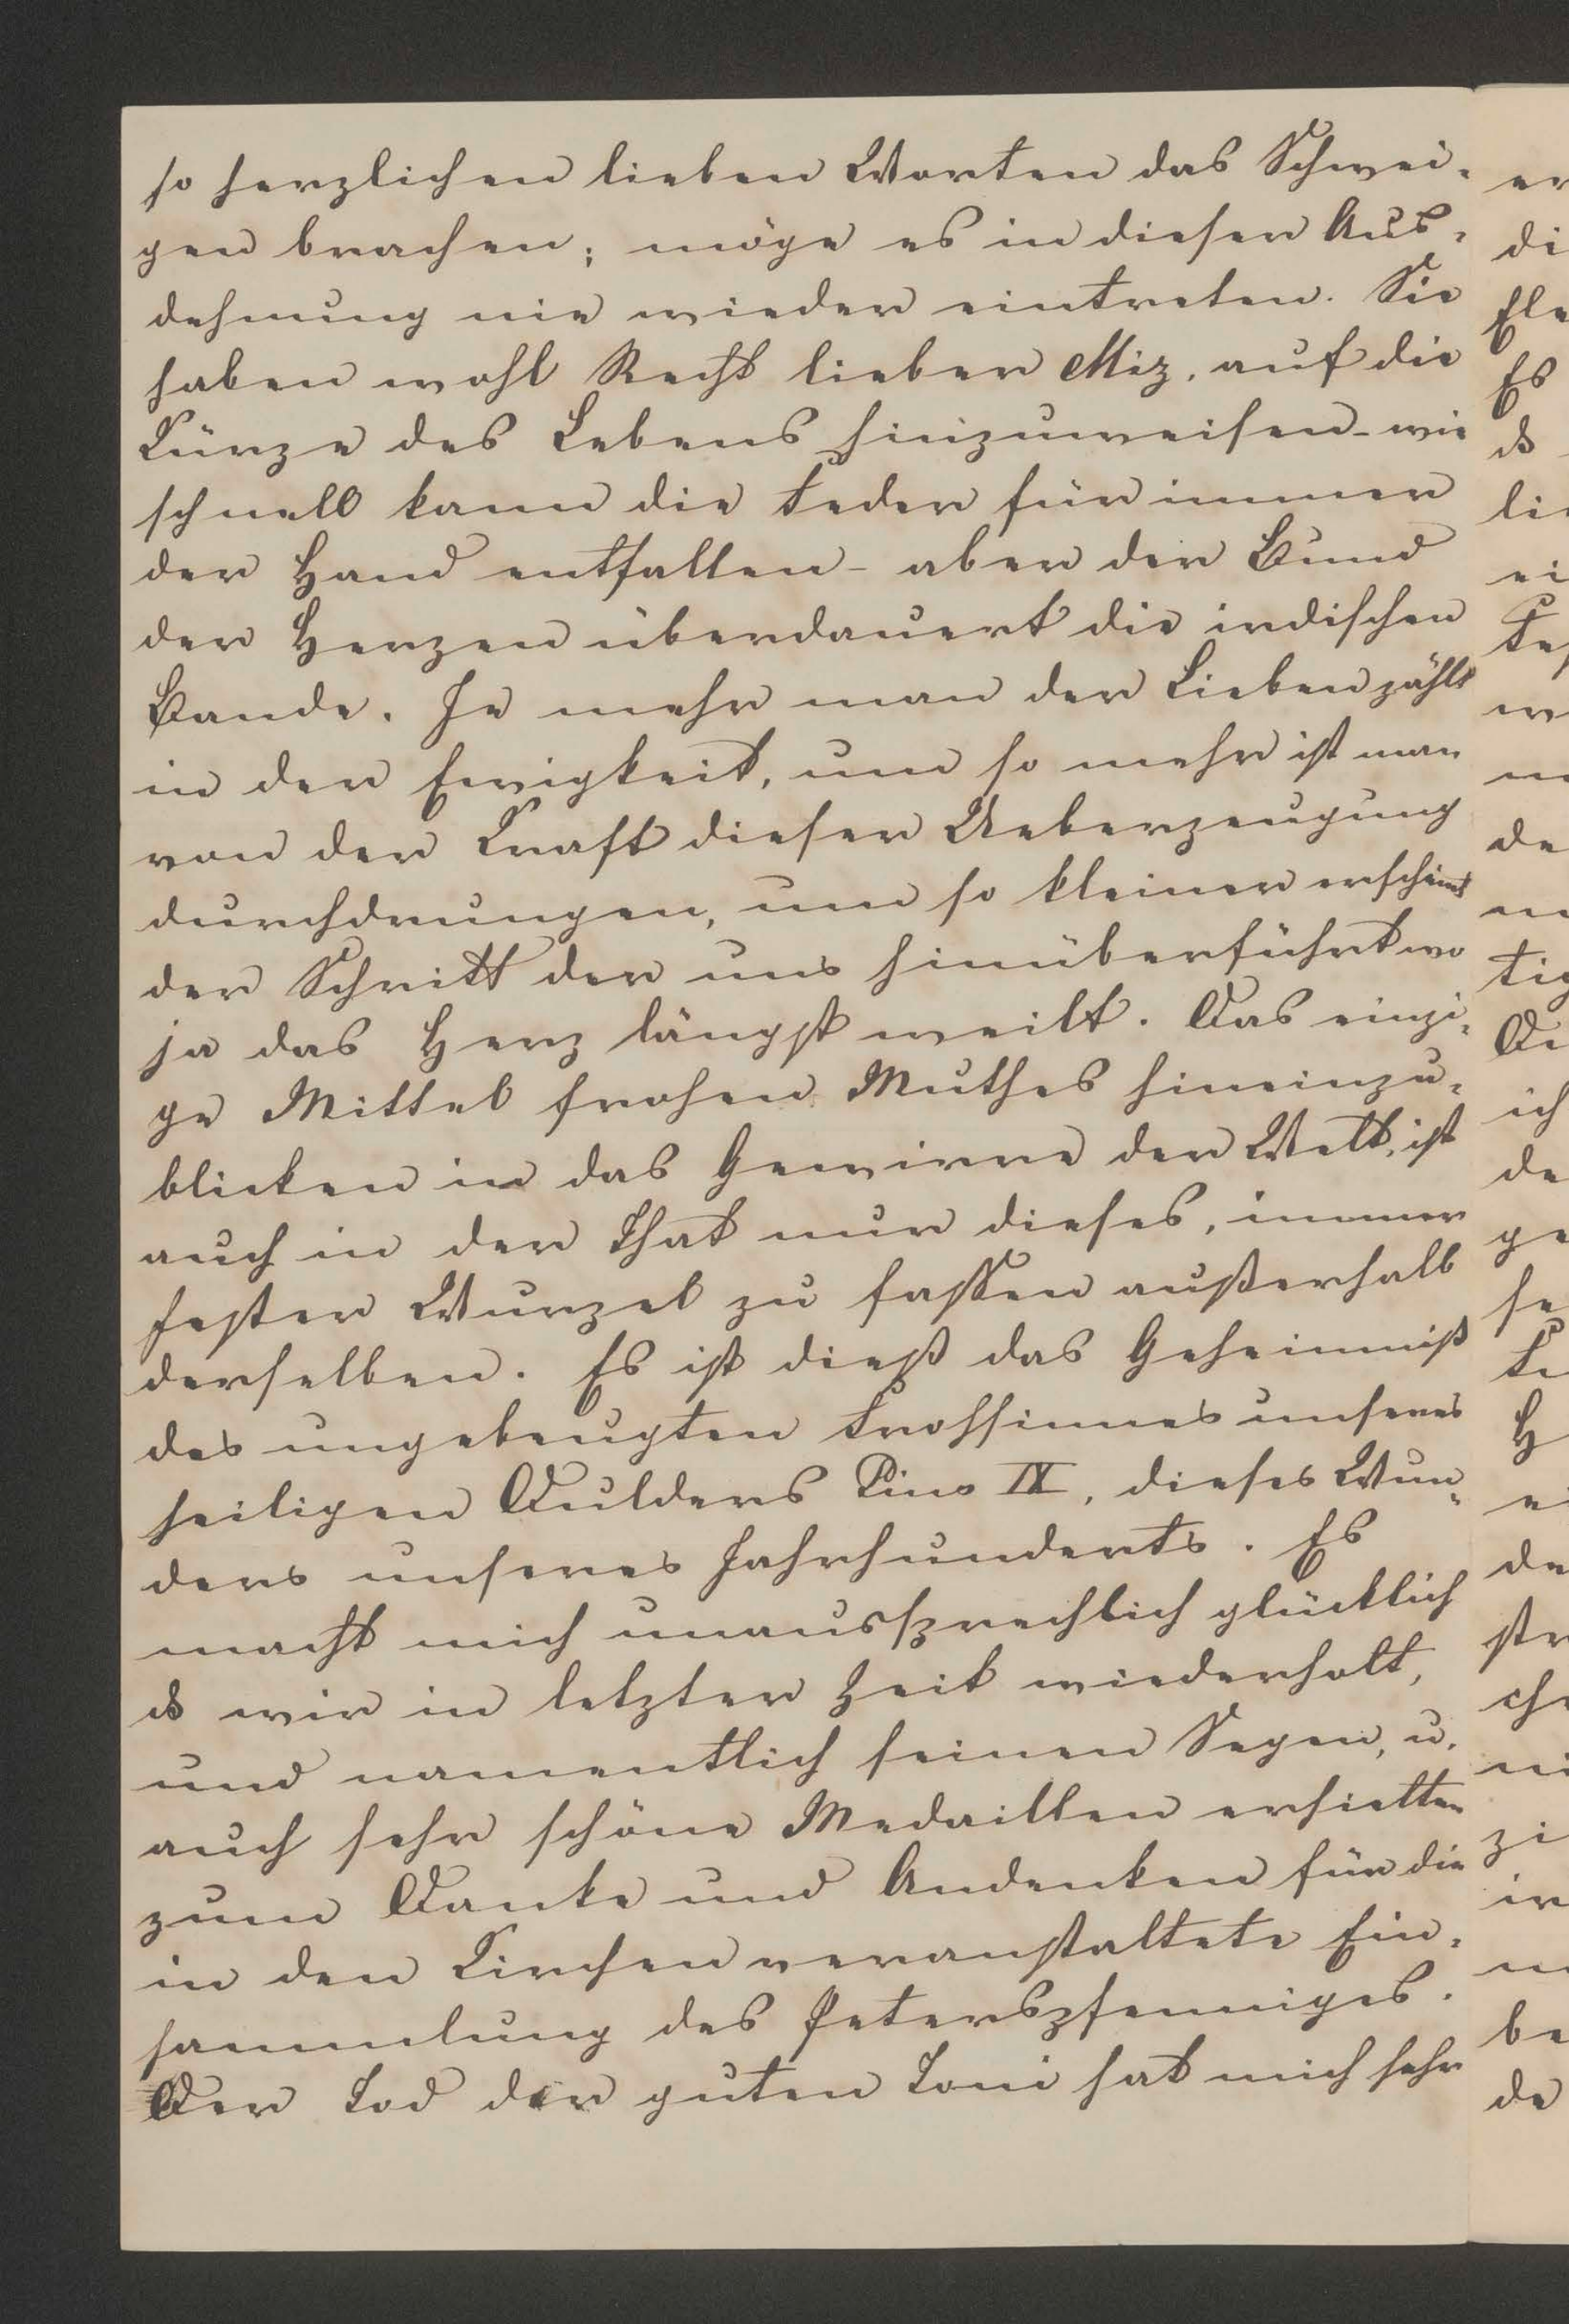 so herzlichen lieben Worten das Schwei-
gen brachen; möge es in dieser Aus-
dehnung nie wieder eintreten. Sie
haben wohl Recht lieber Miz, auf die
Kürze des Lebens hinzuweisen - wie
schnell kann die Feder für immer
der Hand entfallen - aber der Bund
der Herzen überdauert die irdischen
Bande. Je mehr man der Lieben zählt
in der Ewigkeit, um so mehr ist man
von der Kraft dieser Ueberzeugung
durchdrungen, um so kleiner erscheint
der Schritt der uns hinüberführt wo
ja das Herz längst weilt. Das einzi-
ge Mittel frohen Muthes hineinzu-
blicken in das Gewirre der Welt, ist
auch in der That nur dieses, immer
fester Wurzel zu fassen außerhalb
derselben. Es ist dieß das Geheimniß
des ungebeugten Frohsinnes unseres
heiligen Dulders Pius IX, dieses Wun-
ders unseres Jahrhunderts. Es
macht mich unaussprechlich glücklich
ds wir in letzter Zeit wiederholt,
und namentlich seinen Segen, u.
auch sehr schöne Medaillen erhielten
zum Danke und Andenken für die
in den Kirchen veranstaltete Ein-
sammlung des Peterspfenniges.
Der Tod der guten Toni hat mich sehr